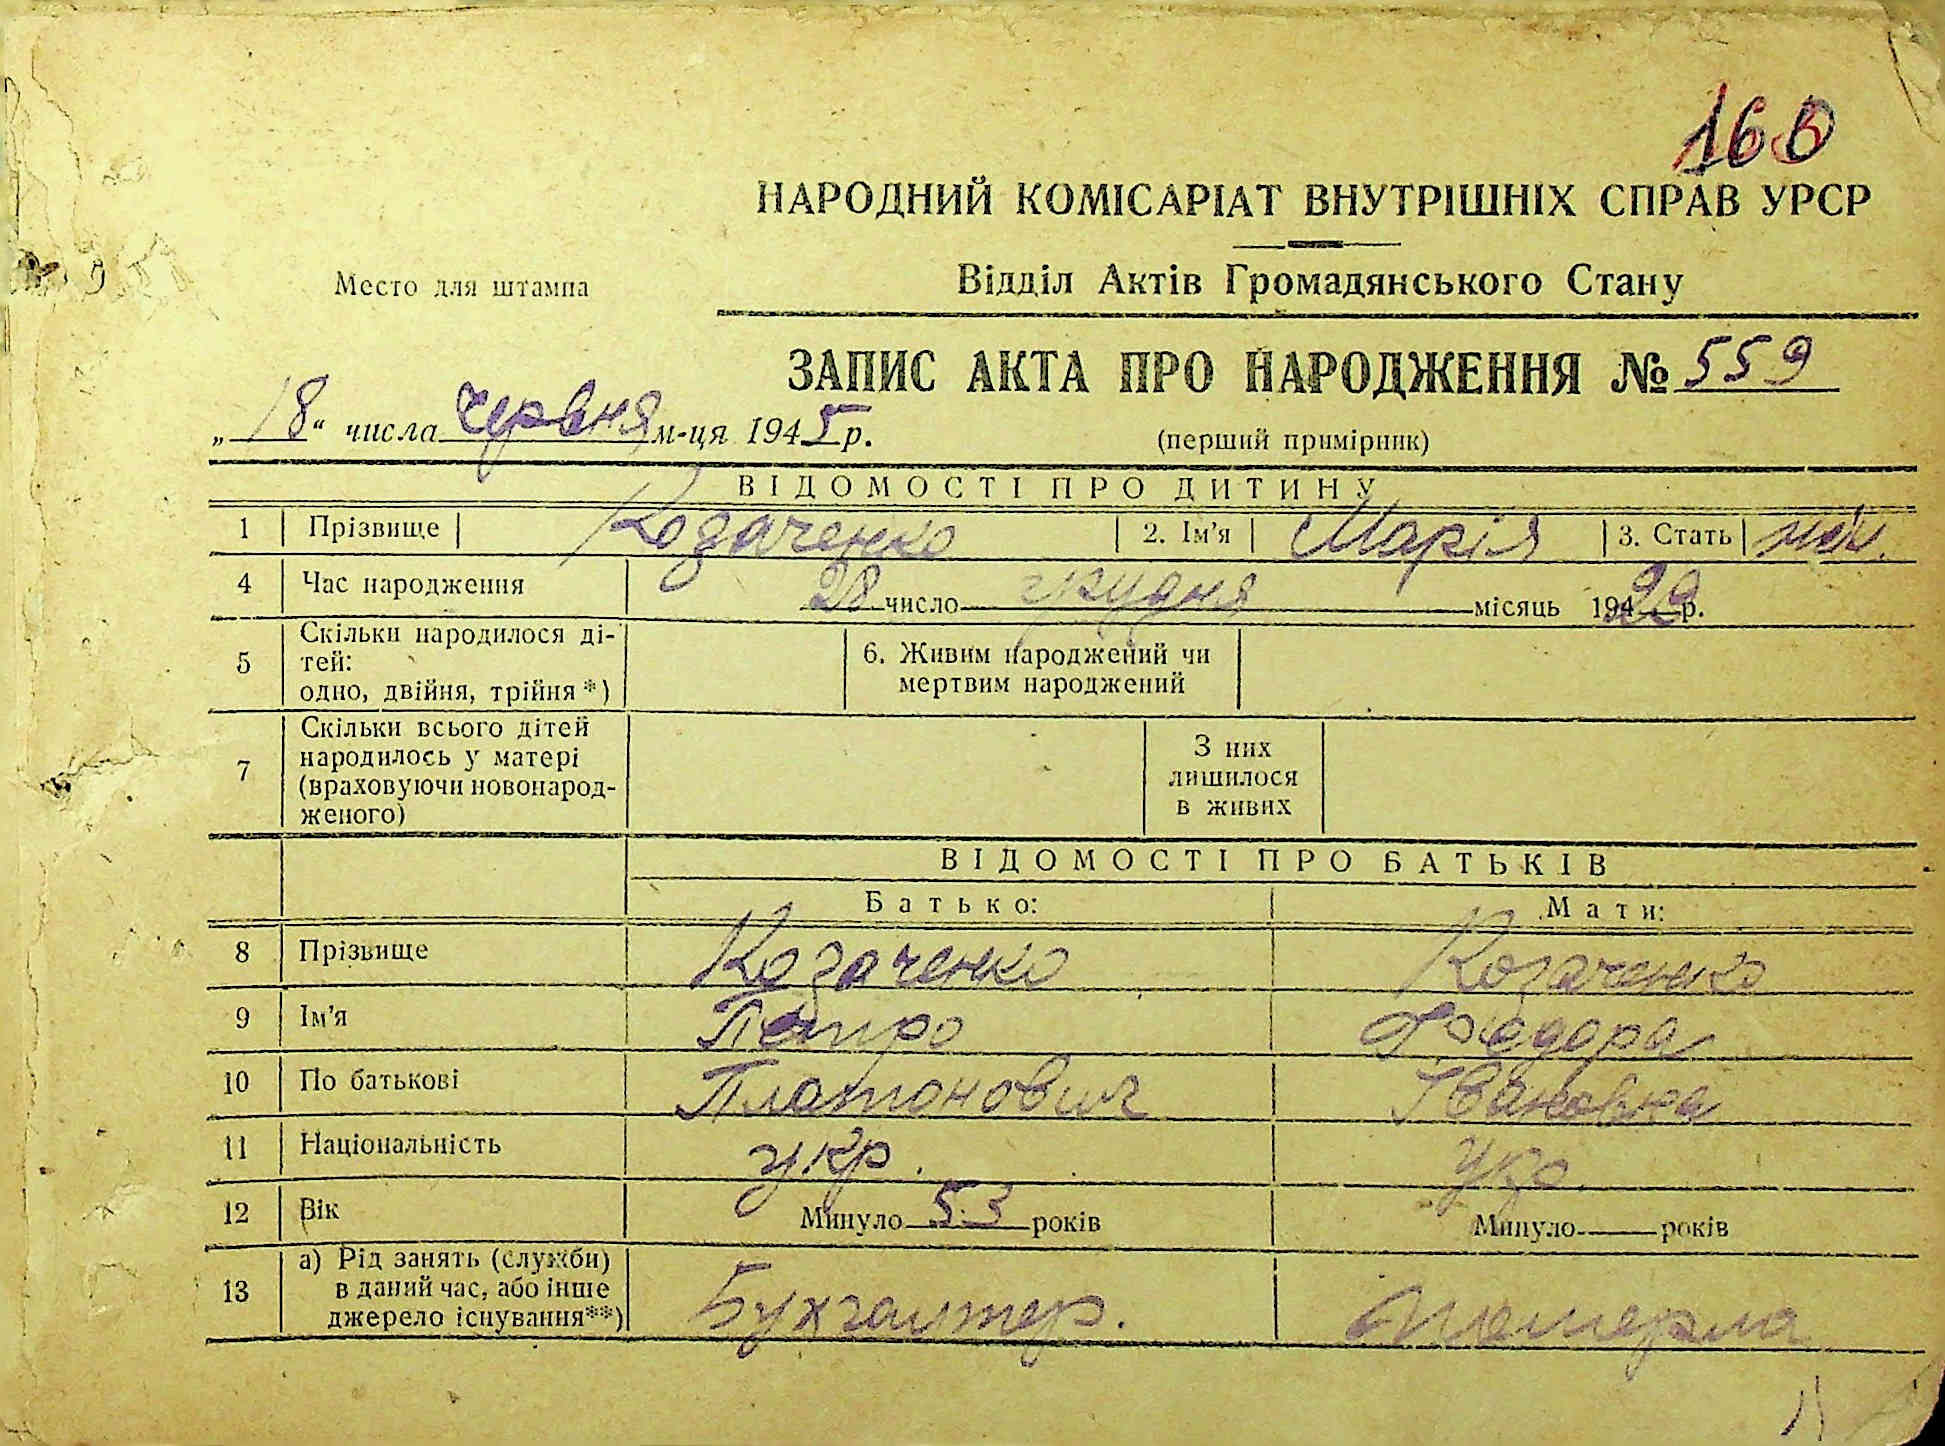 160
НАРОДНИЙ КОМІСАРІАТ ВНУТРІШНІХ СПРАВ УРСР
Место для штампа
Відділ Актів Громадянського Стану
ЗАПИС АКТА ПРО НАРОДЖЕННЯ № 559
„18“ числа червня м-ця 1945 р.
(перший примірник)
ВІДОМОСТІ ПРО ДИТИНУ
1 Прізвище Козаченко 2. Ім'я Марія 3. Стать жін.
4 Час народження 28 число грудня місяць 1929 р.
5 Скільки народилося ді-
тей:
одно, двійня, трійня *)
6. Живим народжений чи
мертвим народжений
7 Скільки всього дітей
народилось у матері
(враховуючи новонарод-
женого)
З них
лишилося
в живих
ВІДОМОСТІ ПРО БАТЬКІВ
Батько: Мати:
8 Прізвище Козаченко Козаченко
9 Ім'я Петро Федора
10 По батькові Платонович Івановна
11 Національність укр. укр.
12 Вік Минуло 53 років Минуло — років
13 а) Рід занять (служби)
в даний час, або інше
джерело існування**)
Бухгалтер. Померла